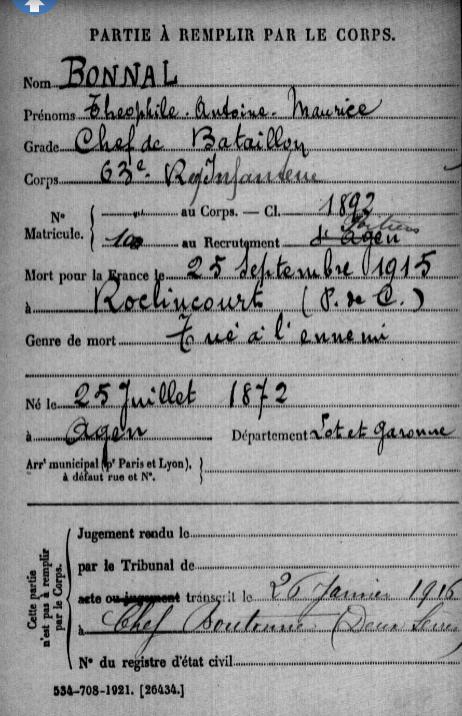 PARTIE À REMPLIR PAR LE CORPS.
Nom BONNAL
Prénoms Théophile. Antoine. Maurice
Grade Chef de Bataillon
Corps 63e. Reg Infanterie
N° Matricule. { au Corps. — Cl. 1892
Poitiers
100 au Recrutement d'Agen
Mort pour la France le 25 Septembre 1915
à Roclincourt (P. de C.)
Genre de mort Tué à l'ennemi
Né le 25 Juillet 1872
à Agen Département Lot et Garonne
Arrt municipal (pr Paris et Lyon), }
à défaut rue et N°.
Cette partie n'est pas à remplir par le Corps.
Jugement rendu le
par le Tribunal de
acte ou jugement transcrit le 26 Janvier 1916
à Chef Boutonne (Deux Sèvres)
N° du registre d'état civil
534-708-1921. [26434.]